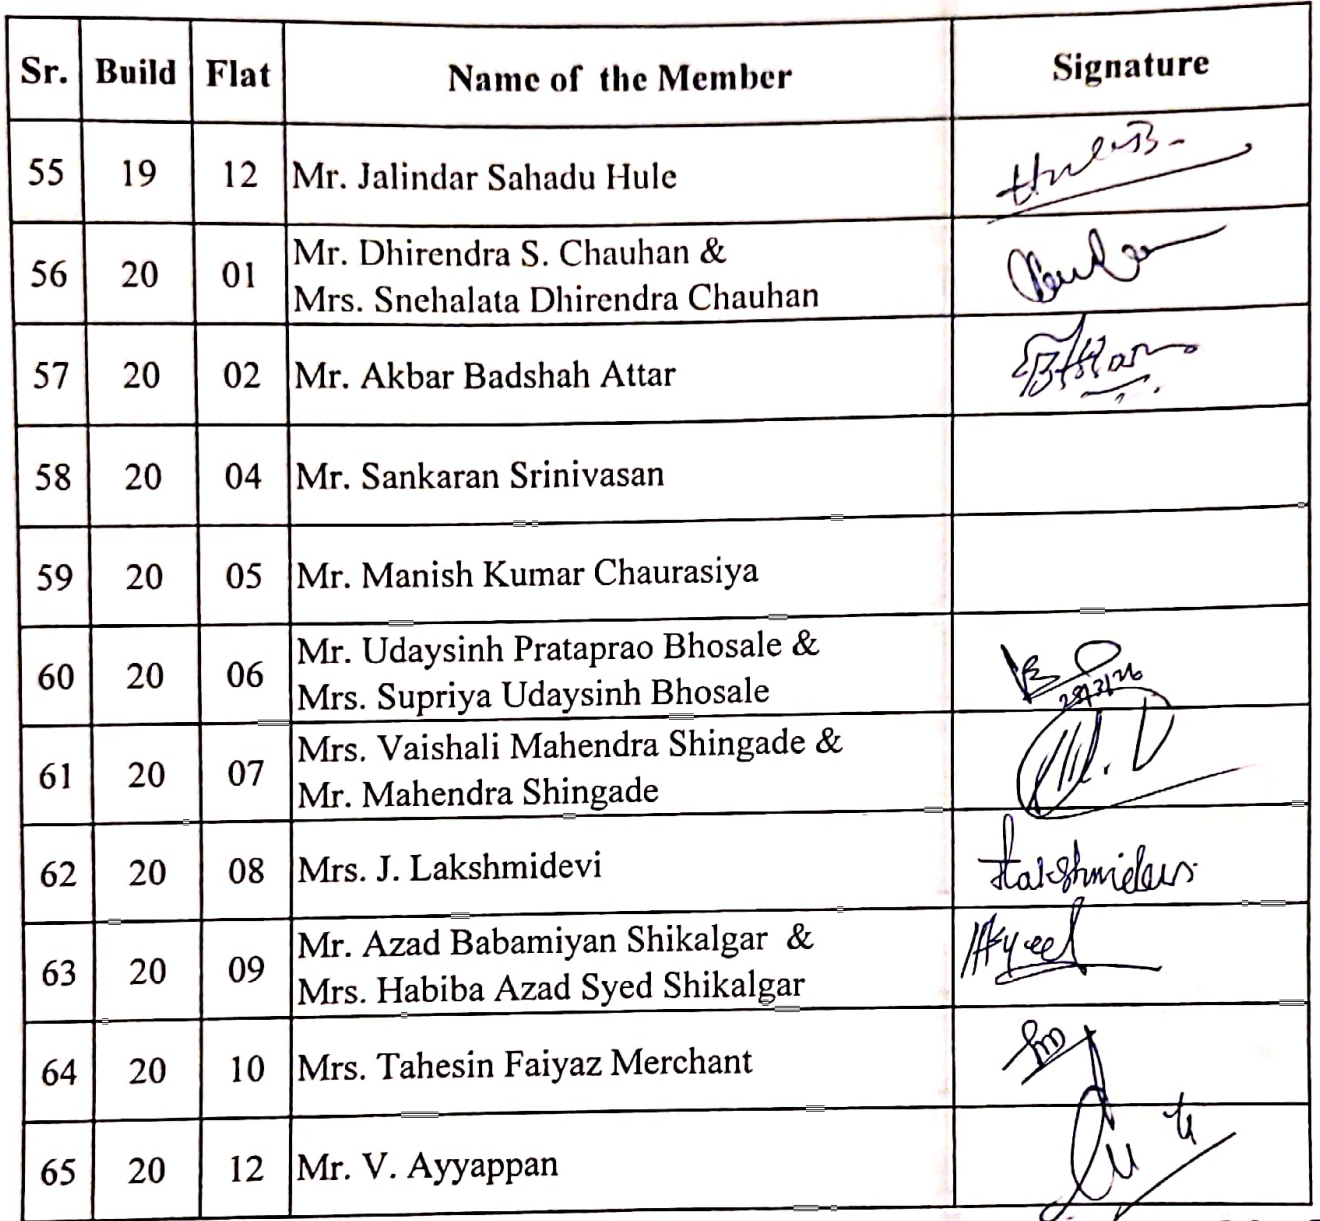 Sr. Build Flat Name of the Member Signature
55 19 12 Mr. Jalindar Sahadu Hule
56 20 01 Mr. Dhirendra S. Chauhan &
Mrs. Snehalata Dhirendra Chauhan
57 20 02 Mr. Akbar Badshah Attar
58 20 04 Mr. Sankaran Srinivasan
59 20 05 Mr. Manish Kumar Chaurasiya
60 20 06 Mr. Udaysinh Prataprao Bhosale &
Mrs. Supriya Udaysinh Bhosale
61 20 07 Mrs. Vaishali Mahendra Shingade &
Mr. Mahendra Shingade
62 20 08 Mrs. J. Lakshmidevi
63 20 09 Mr. Azad Babamiyan Shikalgar &
Mrs. Habiba Azad Syed Shikalgar
64 20 10 Mrs. Tahesin Faiyaz Merchant
65 20 12 Mr. V. Ayyappan